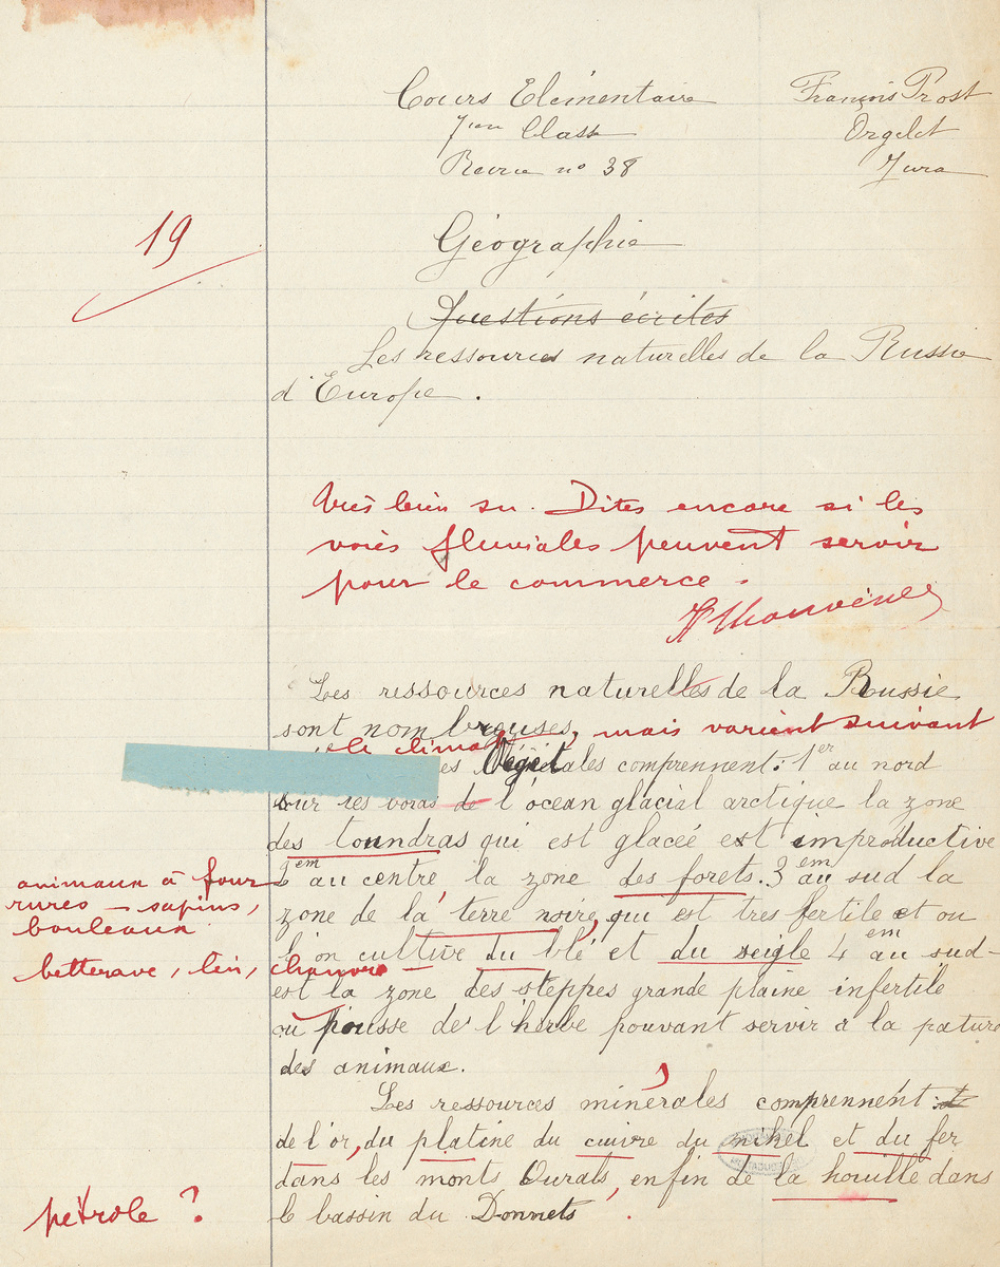 Cours Elémentaire
François Prost
7ème Class
Orgelet
Revue nº 38
Jura
19
Géographie
Questions écrites
Les ressources naturelles de la Russie
d'Europe.
Très bien su. Dites encore si les
voies fluviales peuvent servir
pour le commerce.
Les ressources naturelles de la Russie
sont nombreuses, mais varient suivant
le climat
es végétales comprennent: 1er au nord
sur les bords de l'océan glacial arctique la zone
des toundras qui est glacée est improductive
2em au centre, la zone des forets. 3em au sud la
animaux à four
rures – sapins,
bouleaux
zone de la terre noire, qui est tres fertile et ou
l'on cultive du blé et du seigle 4em au sud-
betterave, lin, chanvre
est la zone des steppes grande plaine infertile
ou pousse de l'herbe pouvant servir à la pature
des animaux.
Les ressources minérales comprennent:
de l'or, du platine du cuivre du nikel et du fer
dans les monts Ourals, enfin de la houille dans
le bassin du Donnets.
pétrole ?